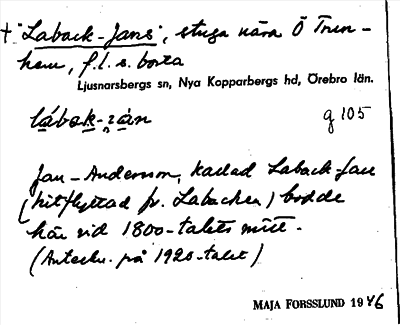 † "Laback-Jans", stuga nära Ö Trun-
hem, f.l. s. borta
Ljusnarsbergs sn, Nya Kopparbergs hd, Örebro län.
lábak-ián g 105
Jan-Andersson, kallad Laback-Jan
(hitflyttad fr. Labacken) bodde
här vid 1800-talets mitt.
(Anteckn. på 1920-talet)
MAJA FORSSLUND 1946